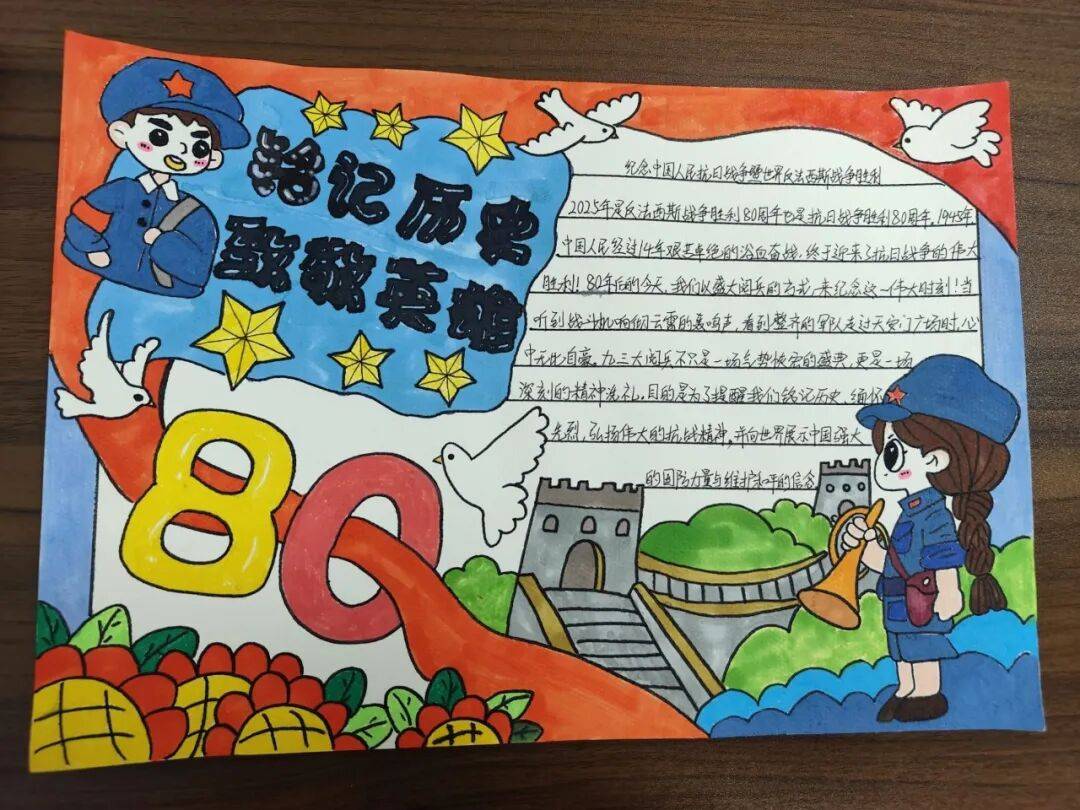 铭记历史
致敬英雄
80
纪念中国人民抗日战争暨世界反法西斯战争胜利
2025年是反法西斯战争胜利80周年也是抗日战争胜利80周年,1945年
中国人民经过14年艰苦卓绝的浴血奋战,终于迎来了抗日战争的伟大
胜利!80年后的今天,我们以盛大阅兵的方式,来纪念这一伟大时刻!当
听到战斗机响彻云霄的轰鸣声,看到整齐的军队走过天安门广场时,心
中无比自豪。九三大阅兵不只是一场气势恢宏的盛典,更是一场
深刻的精神洗礼。目的是为了提醒我们铭记历史,缅怀
先烈,弘扬伟大的抗战精神,并向世界展示中国强大
的国防力量与维护和平的信念